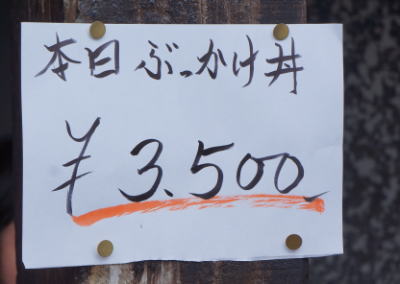 本日ぶっかけ丼
¥3,500